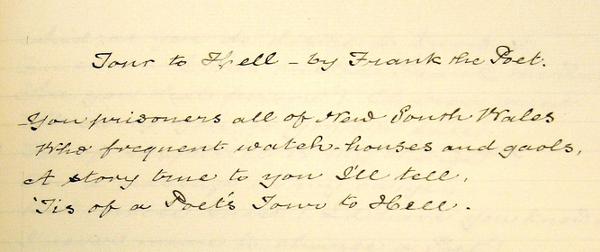 Tour to Hell - by Frank the Poet.
You prisoners all of New South Wales
Who frequent watch-houses and gaols,
A story true to you I'll tell,
'Tis of a Poet's Tour to Hell.